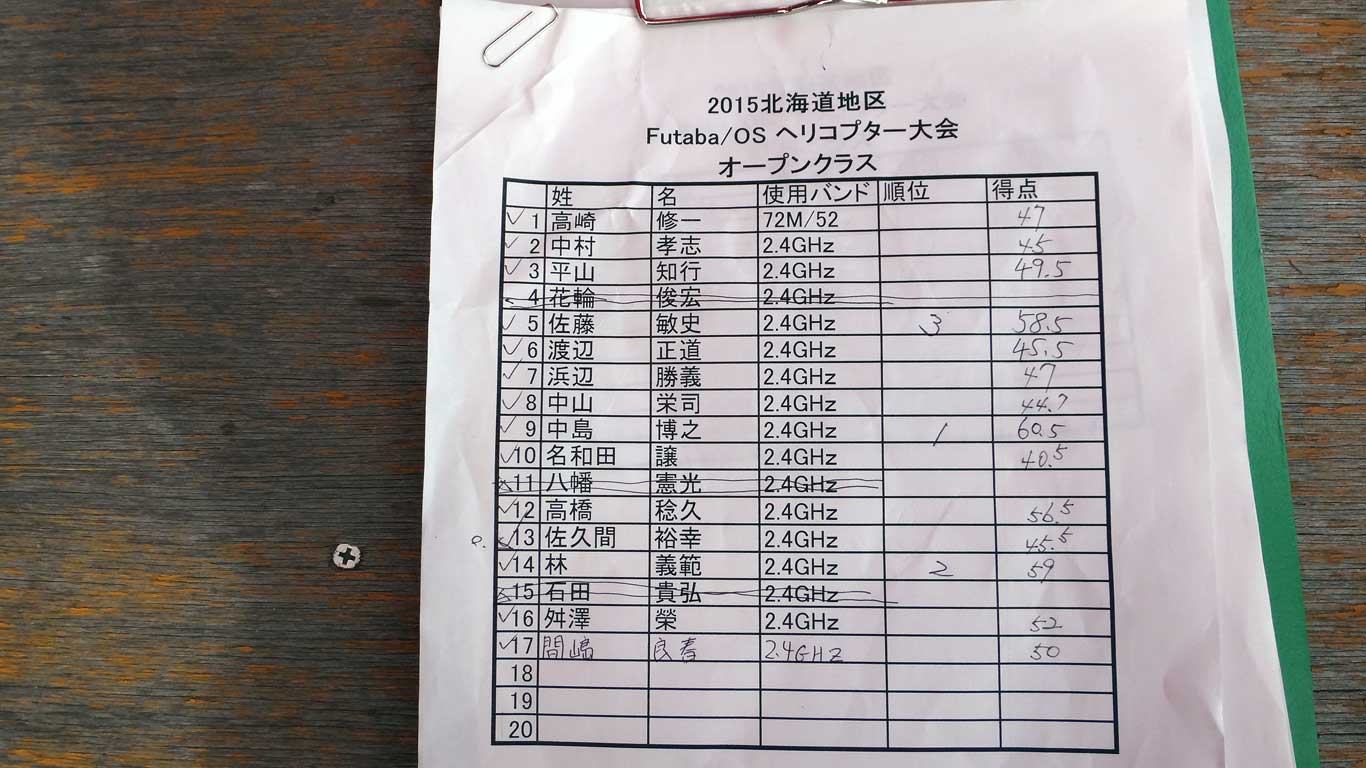 2015北海道地区
Futaba/OS ヘリコプター大会
オープンクラス
姓 名 使用バンド 順位 得点
1 高崎 修一 72M/52 47
2 中村 孝志 2.4GHz 45
3 平山 知行 2.4GHz 49.5
4 花輪 俊宏 2.4GHz
5 佐藤 敏史 2.4GHz 3 58.5
6 渡辺 正道 2.4GHz 45.5
7 浜辺 勝義 2.4GHz 47
8 中山 栄司 2.4GHz 44.7
9 中島 博之 2.4GHz 1 60.5
10 名和田 譲 2.4GHz 40.5
11 八幡 憲光 2.4GHz
12 高橋 稔久 2.4GHz 56.5
13 佐久間 裕幸 2.4GHz 45.5
14 林 義範 2.4GHz 2 59
15 石田 貴弘 2.4GHz
16 舛澤 榮 2.4GHz 52
17 間嶋 良春 2.4GHZ 50
18
19
20